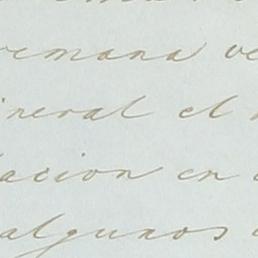 emana ve
ineral el
acion en
algunos